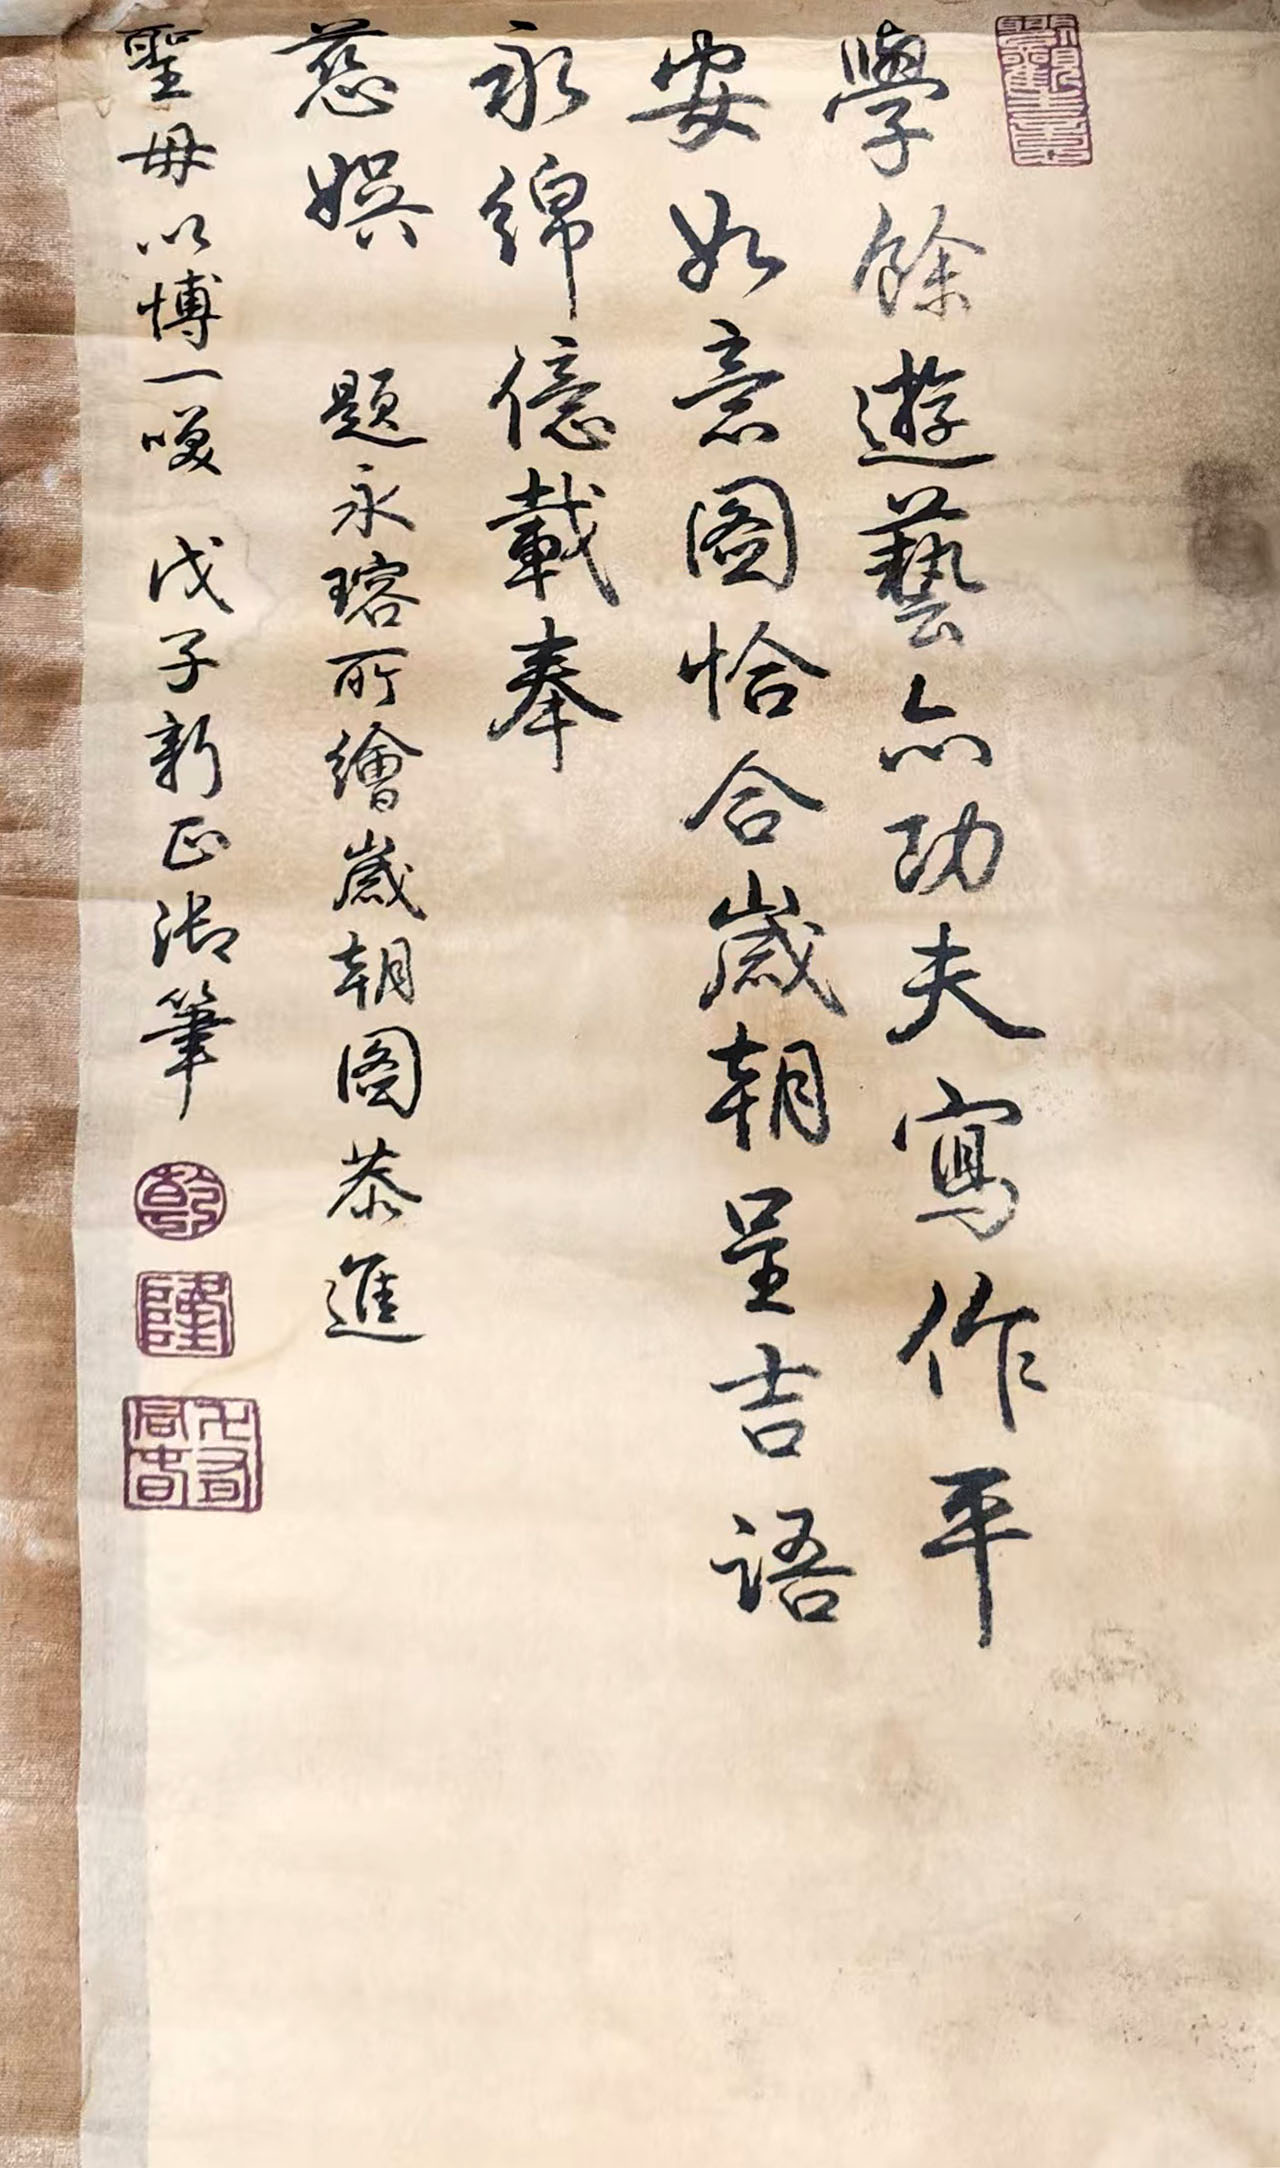 學餘遊藝亦功夫寫作平
安如意圖恰合歲朝呈吉語
永綿億載奉
慈娛
題永瑢所繪歲朝圖恭進
聖母以博一笑 戊子新正御筆
乾
隆